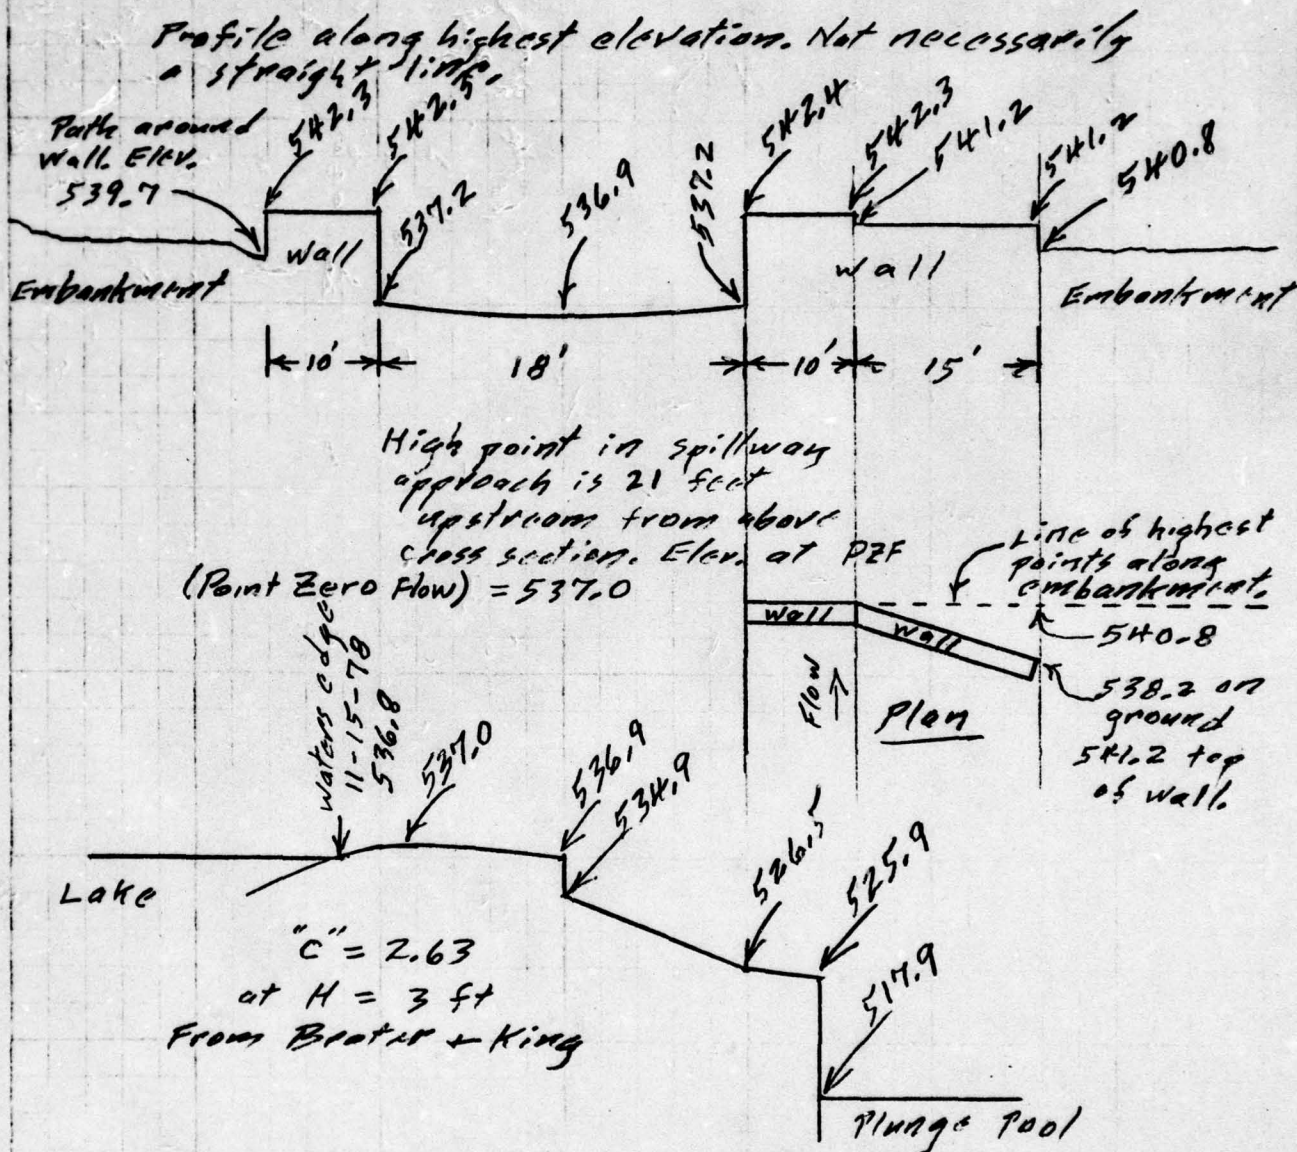 Profile along highest elevation. Not necessarily
a straight line.
Path around
Wall. Elev.
539.7
542.3
542.5
537.2
536.9
537.2
542.4
542.3
541.2
541.2
540.8
Wall
Wall
Embankment
Embankment
10'
18'
10'
15'
High point in spillway
approach is 21 feet
upstream from above
cross section. Elev. at PZF
(Point Zero Flow) = 537.0
Line of highest
points along
embankment.
540.8
wall
wall
Flow
Plan
538.2 on
ground
541.2 top
of wall.
waters edge
11-15-78
536.8
537.0
536.9
534.9
526.5
525.9
517.9
Lake
"C" = 2.63
at H = 3 ft
From Brater + King
Plunge Pool